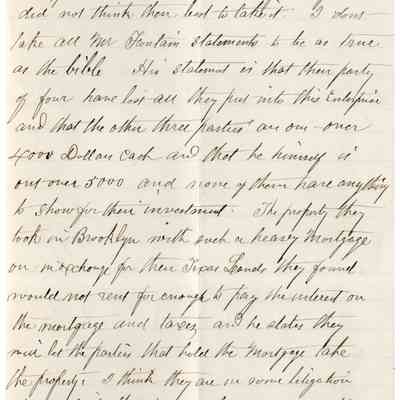 did not think then best to take it. I dont
take all Mr Fontain statements to be as true
as the bible His statement is that their party
of four have lost all they put into this Enterprise
and that the other three parties are out over
4000 Dollars Cash and that he himself is
out over 5000 and none of them have anything
to show for their investment. The property they
took in Brooklyn with such a heavy Mortgage
on in exchange for their Texas Lands they found
would not rent for enough to pay the interest on
the mortgage and taxes and he states they
will let the parties that hold the Mortgage take
the property. I think they are in some litigation